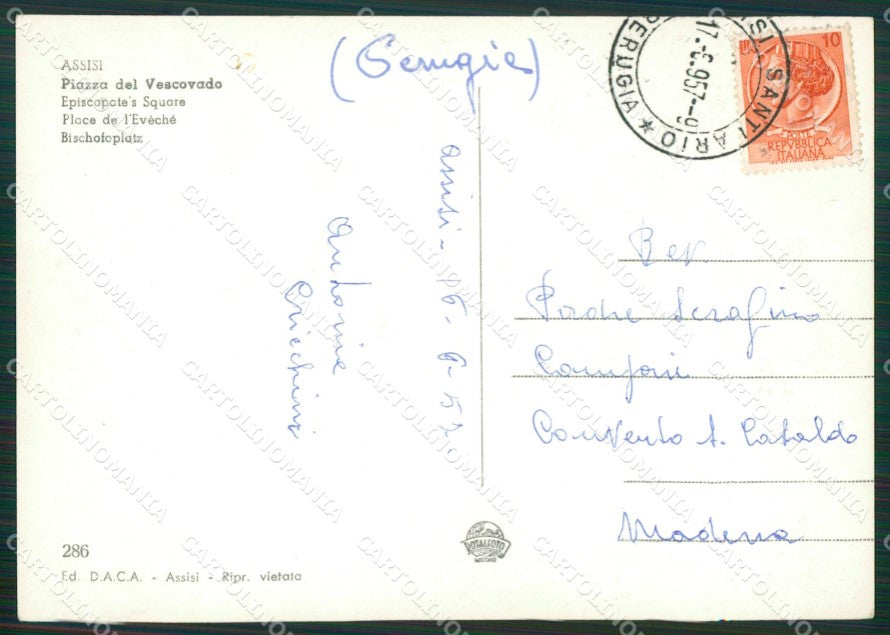 ASSISI
Piazza del Vescovado
Episcopate's Square
Place de l'Evèché
Bischofoplatz
(Perugia)
SANTUARIO
PERUGIA
17.-6.957.-9
10
POSTE
REPVBBLICA
ITALIANA
Assisi - 16-6-57
Antonine
Rev.
Padre Serafino
Convento S. Cataldo
Modena
286
ROTALFOTO
Ed. D.A.C.A. - Assisi - Ripr. vietata
CARTOLINOMANIA